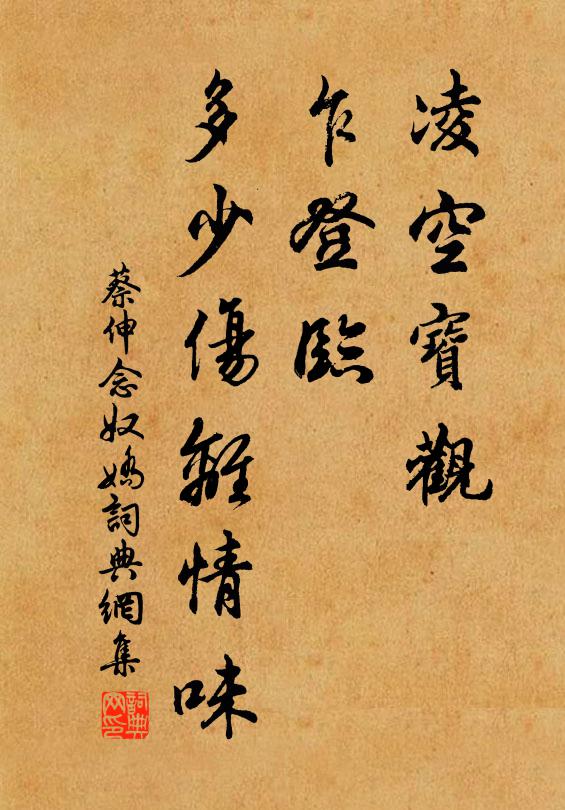 凌空寶觀
乍登臨
多少傷離情味
蔡伸念奴嬌詞典網集
詞典网印